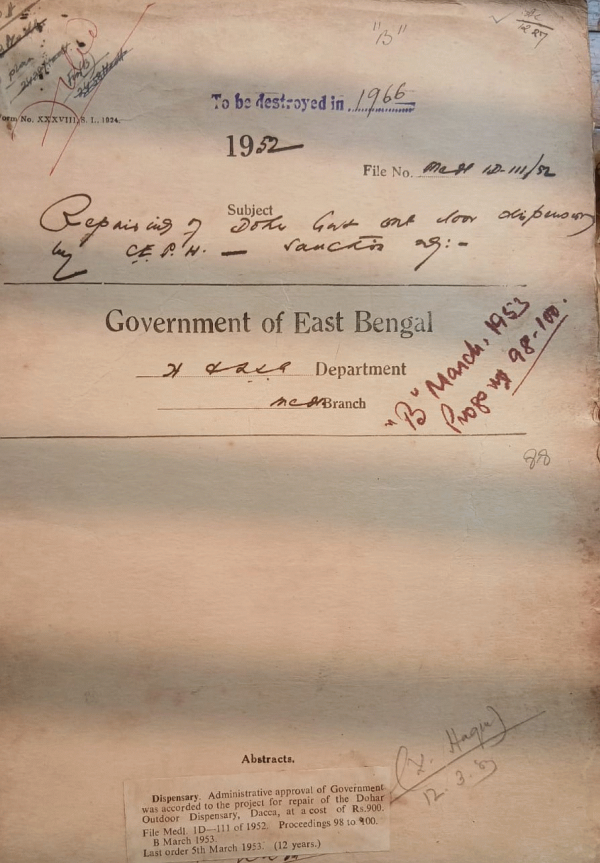 "B"
To be destroyed in 1966
Form No. XXXVIII, S. I., 1924.
1952
File No. Medl 1D-III/52
Subject
Repairing of Dohar Govt out door dispensary
by C.E.P.H. — sanction
Government of East Bengal
Department
Medl Branch
"B" March, 1953
Progs 98-100.
88
(X. Haque)
12.3.
Abstracts.
Dispensary. Administrative approval of Government
was accorded to the project for repair of the Dohar
Outdoor Dispensary, Dacca, at a cost of Rs.900.
File Medl. 1D—111 of 1952. Proceedings 98 to 100.
B March 1953.
Last order 5th March 1953. (12 years.)